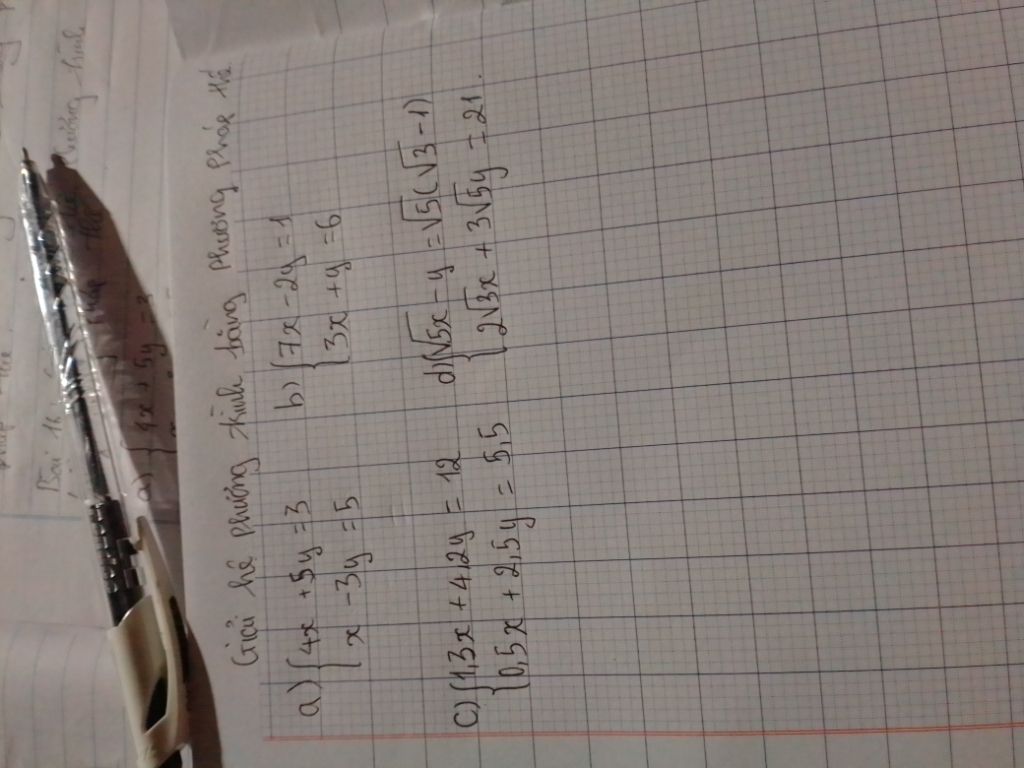 Giải hệ phương trình bằng phương pháp thế
a) { 4x + 5y = 3
x - 3y = 5
b) { 7x - 2y = 1
3x + y = 6
c) { 1,3x + 4,2y = 12
0,5x + 2,5y = 5,5
d) { √5x - y = √5(√3 - 1)
2√3x + 3√5y = 21.
Bài
a) { 4x + 5y = 3